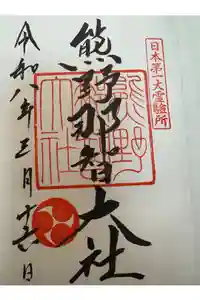 日本第一大霊験所
熊野那智大社
令和八年三月十六日